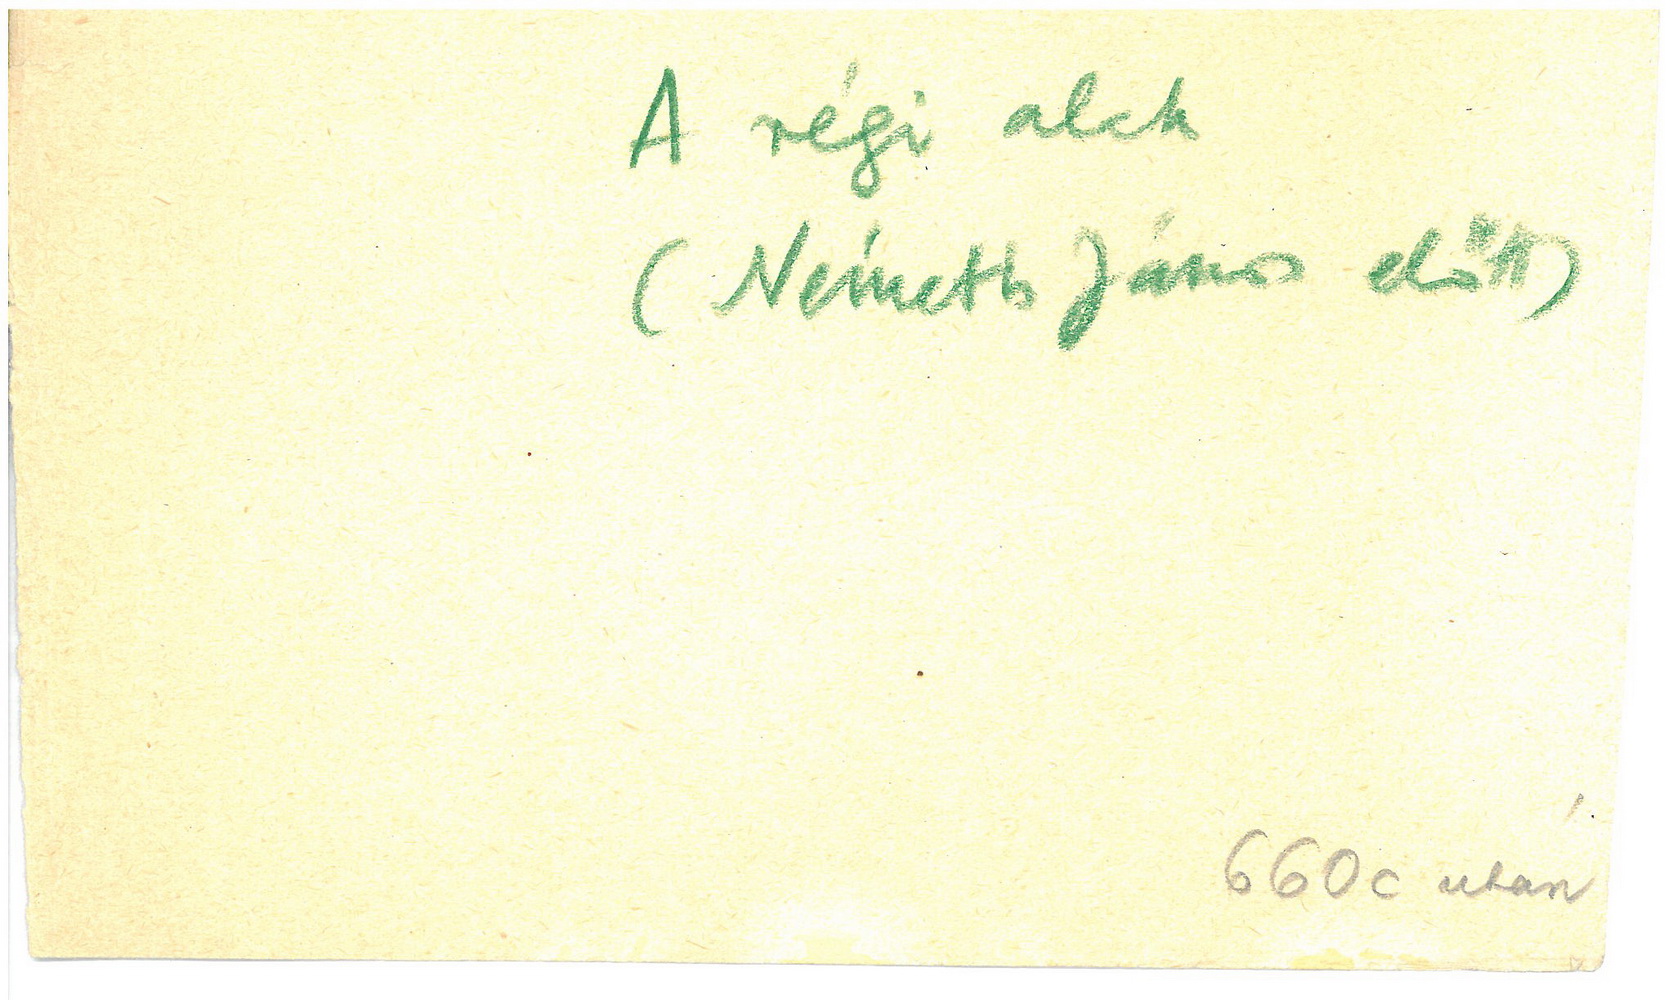 A régi alak
(Németh János előtt)
660c után